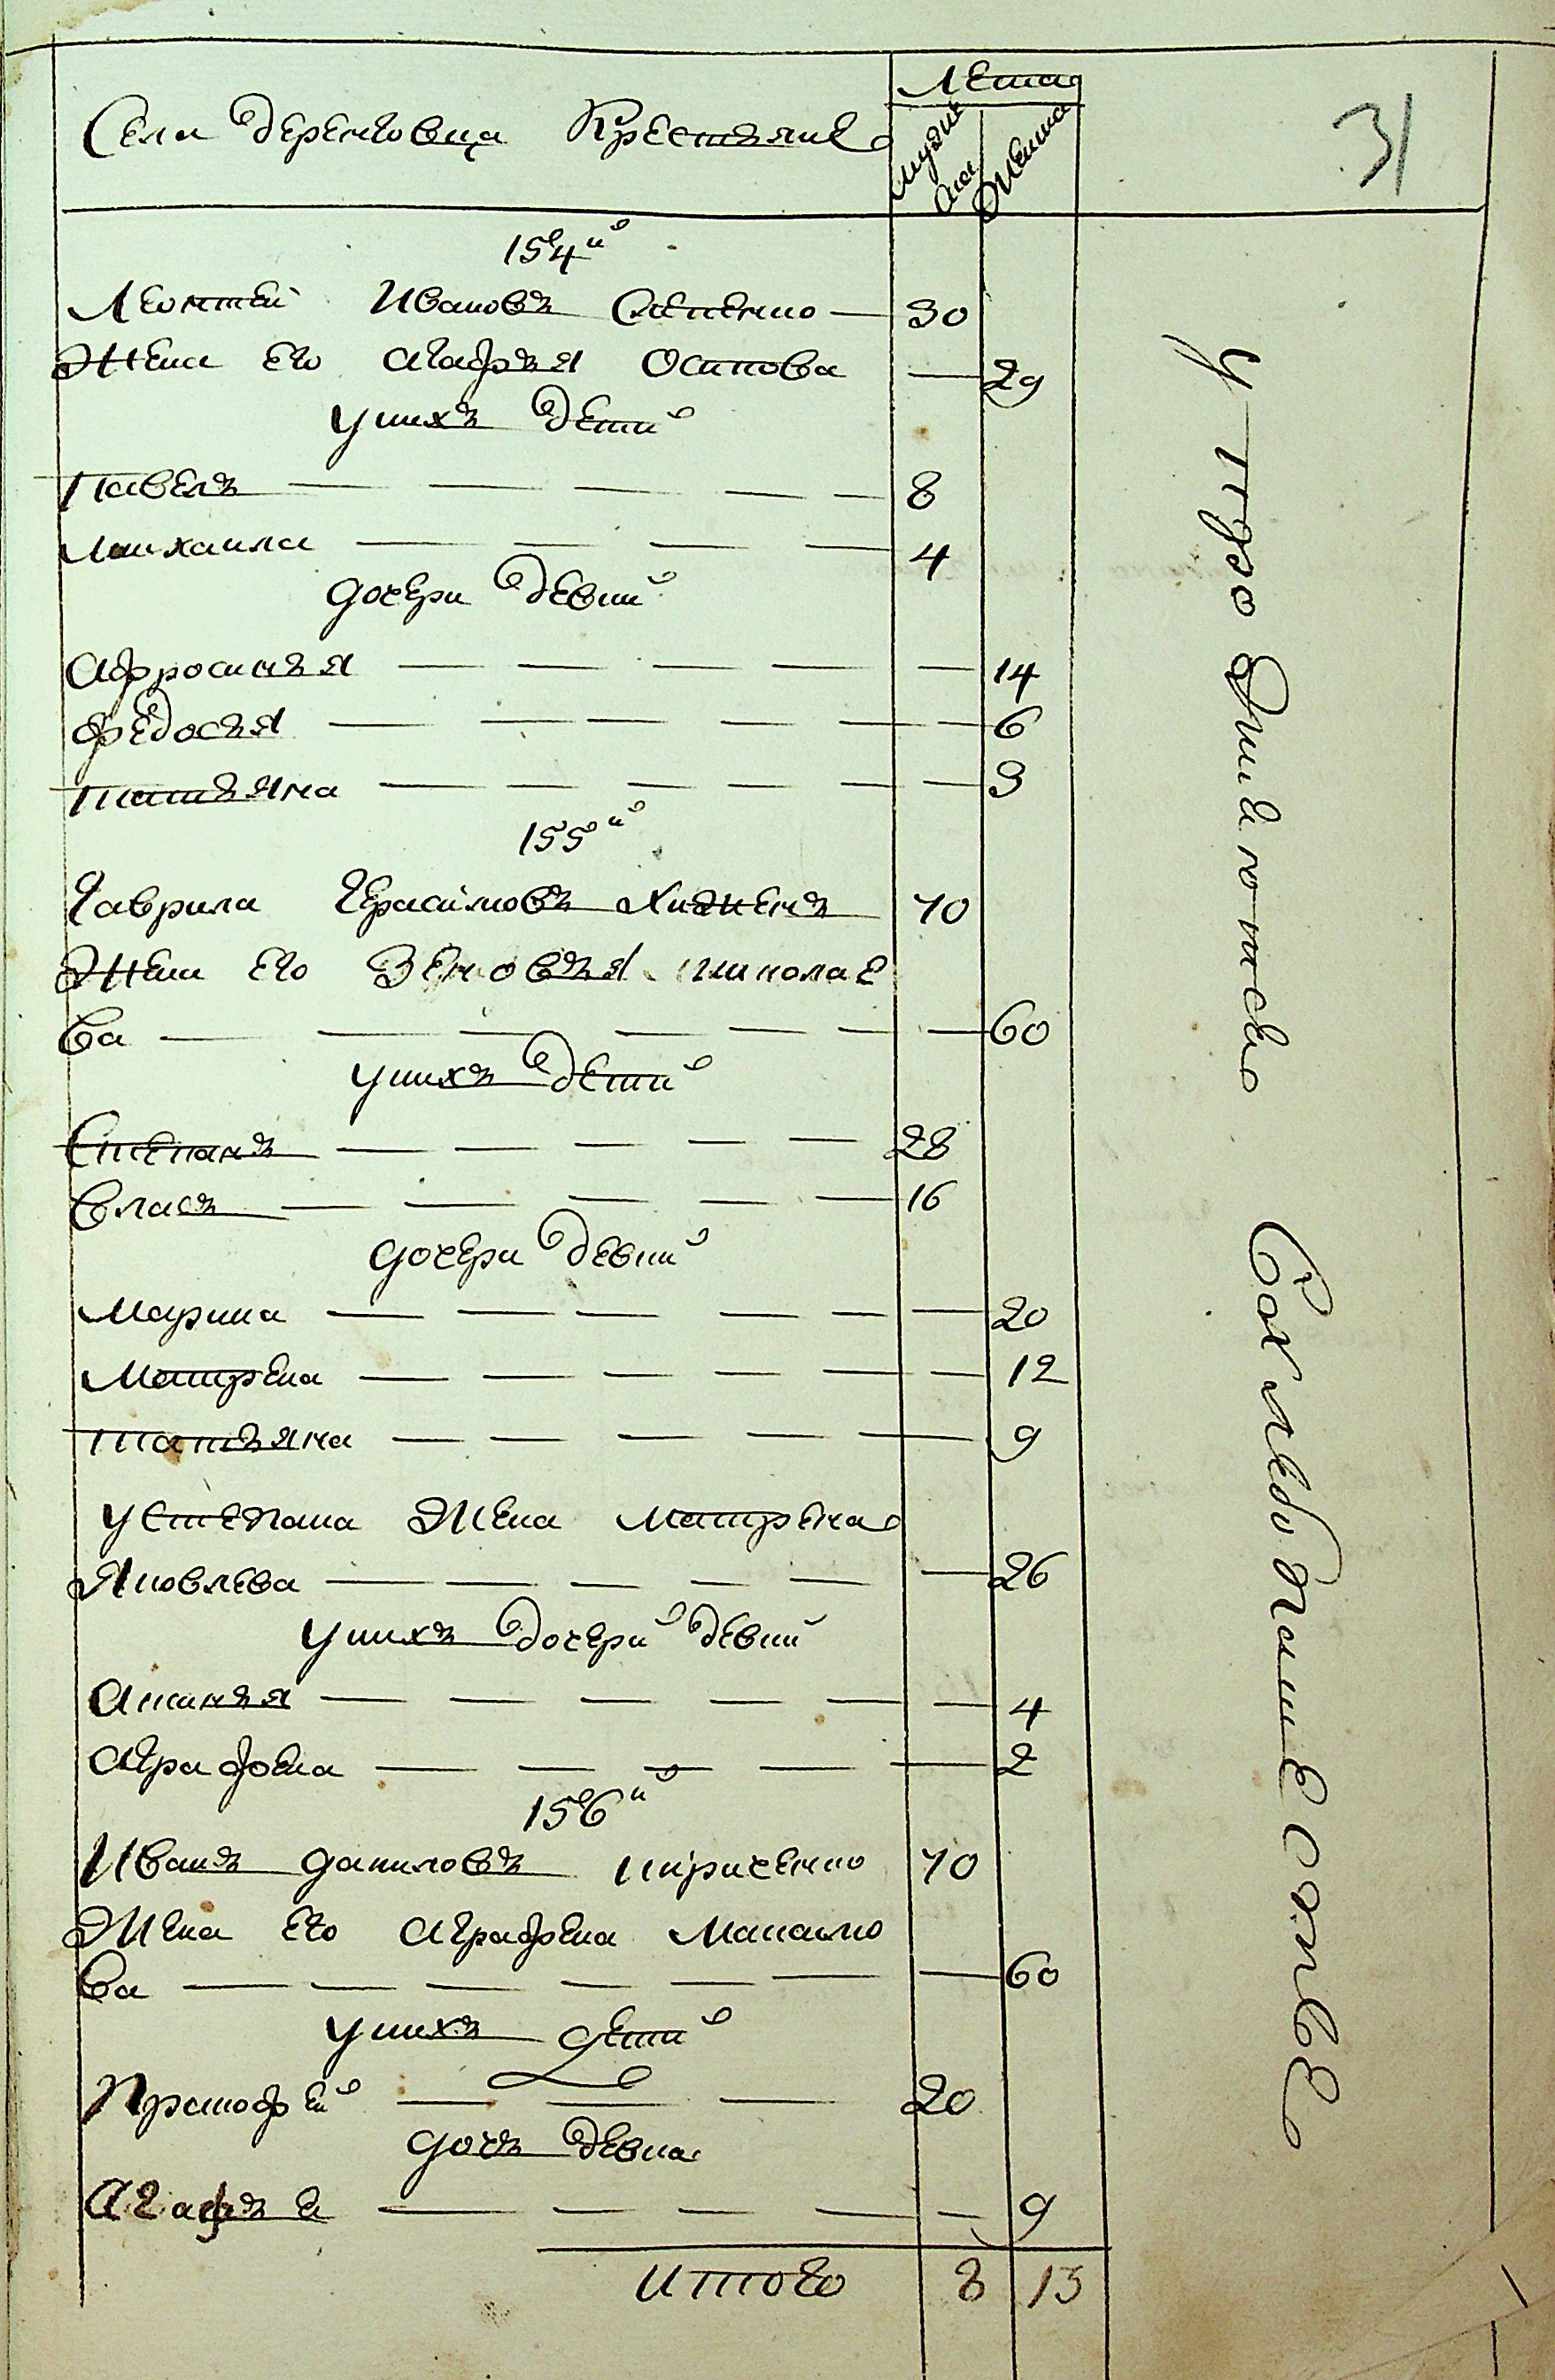 Села деренковца Крестьяне
Лета
мужи
ска
Женска
31
154й
Леонтей Ивановъ Слепенко — 30
Жена его Агафья Осипова — 29
у нихъ детй
Павелъ — 8
михаила — 4
дочери девки
Афросинья — 14
федосья — 6
татьяна — 3
155й
Гаврила Герасимовъ Хижнекъ 70
Жена его Зеновья николае
ва — 60
у нихъ детй
Степанъ — 28
Власъ — 16
дочери девки
Марина — 20
Матрена — 12
татьяна — 9
у степана Жена матрена
Яковлева — 26
у нихъ дочери девки
Аксинья — 4
Аграфена — 2
156й
Иванъ даниловъ кириченко 70
Жена его Аграфена Макаимо
ва — 60
у нихъ детй
Пракофей — 20
дочь девка
Агафья — 9
итого 8 13